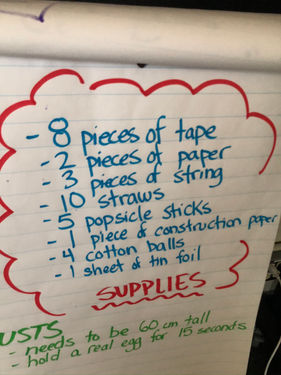 - 8 pieces of tape
- 2 pieces of paper
- 3 pieces of string
- 10 straws
- 5 popsicle sticks
- 1 piece of construction paper
- 4 cotton balls
- 1 sheet of tin foil
SUPPLIES
USTS
- needs to be 60 cm tall
- hold a real egg for 15 seconds